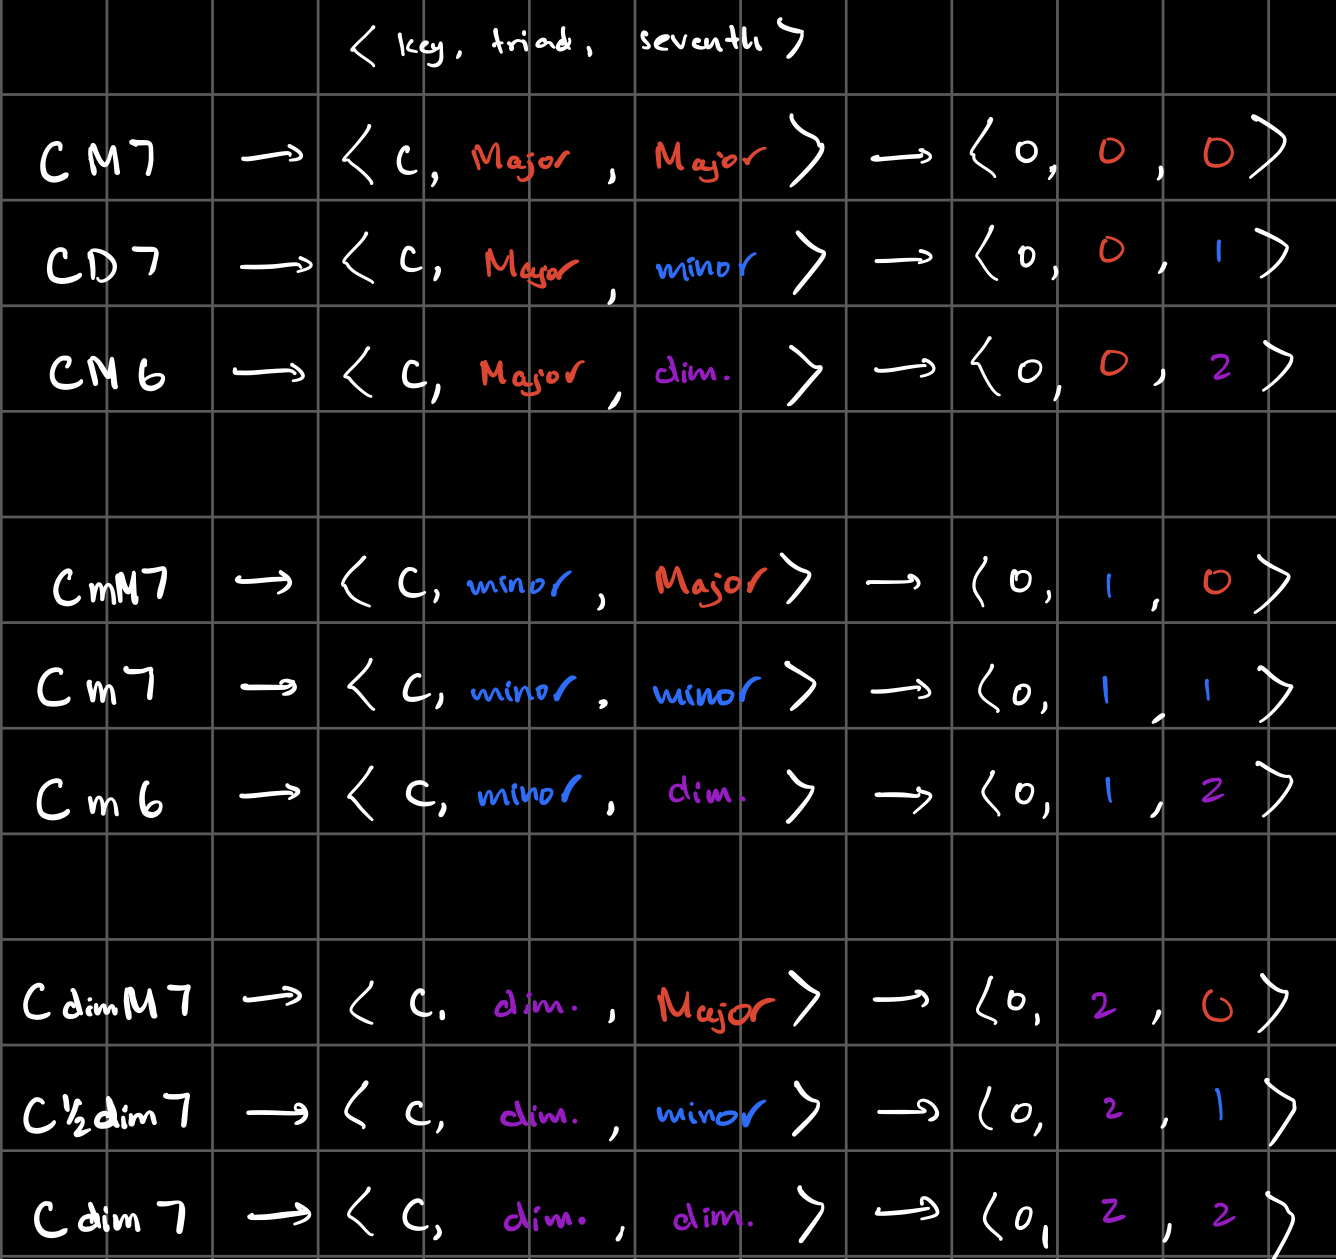 < key, triad, seventh >
CM7 → < C, Major, Major > → < 0, 0, 0 >
CD7 → < C, Major, minor > → < 0, 0, 1 >
CM6 → < C, Major, dim. > → < 0, 0, 2 >
CmM7 → < C, minor, Major > → < 0, 1, 0 >
Cm7 → < C, minor, minor > → < 0, 1, 1 >
Cm6 → < C, minor, dim. > → < 0, 1, 2 >
CdimM7 → < C, dim., Major > → < 0, 2, 0 >
C½dim7 → < C, dim., minor > → < 0, 2, 1 >
Cdim7 → < C, dim., dim. > → < 0, 2, 2 >